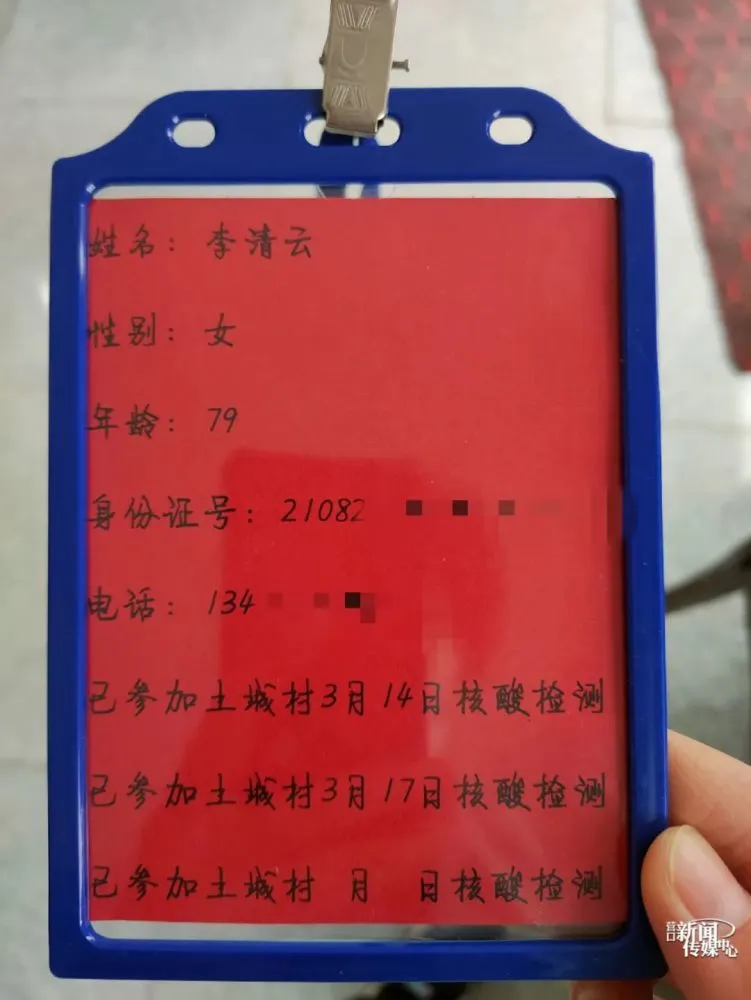 姓名：李清云
性别：女
年龄：79
身份证号：21082
电话：134
已参加土城村3月14日核酸检测
已参加土城村3月17日核酸检测
已参加土城村 月 日核酸检测
营口新闻
传媒中心